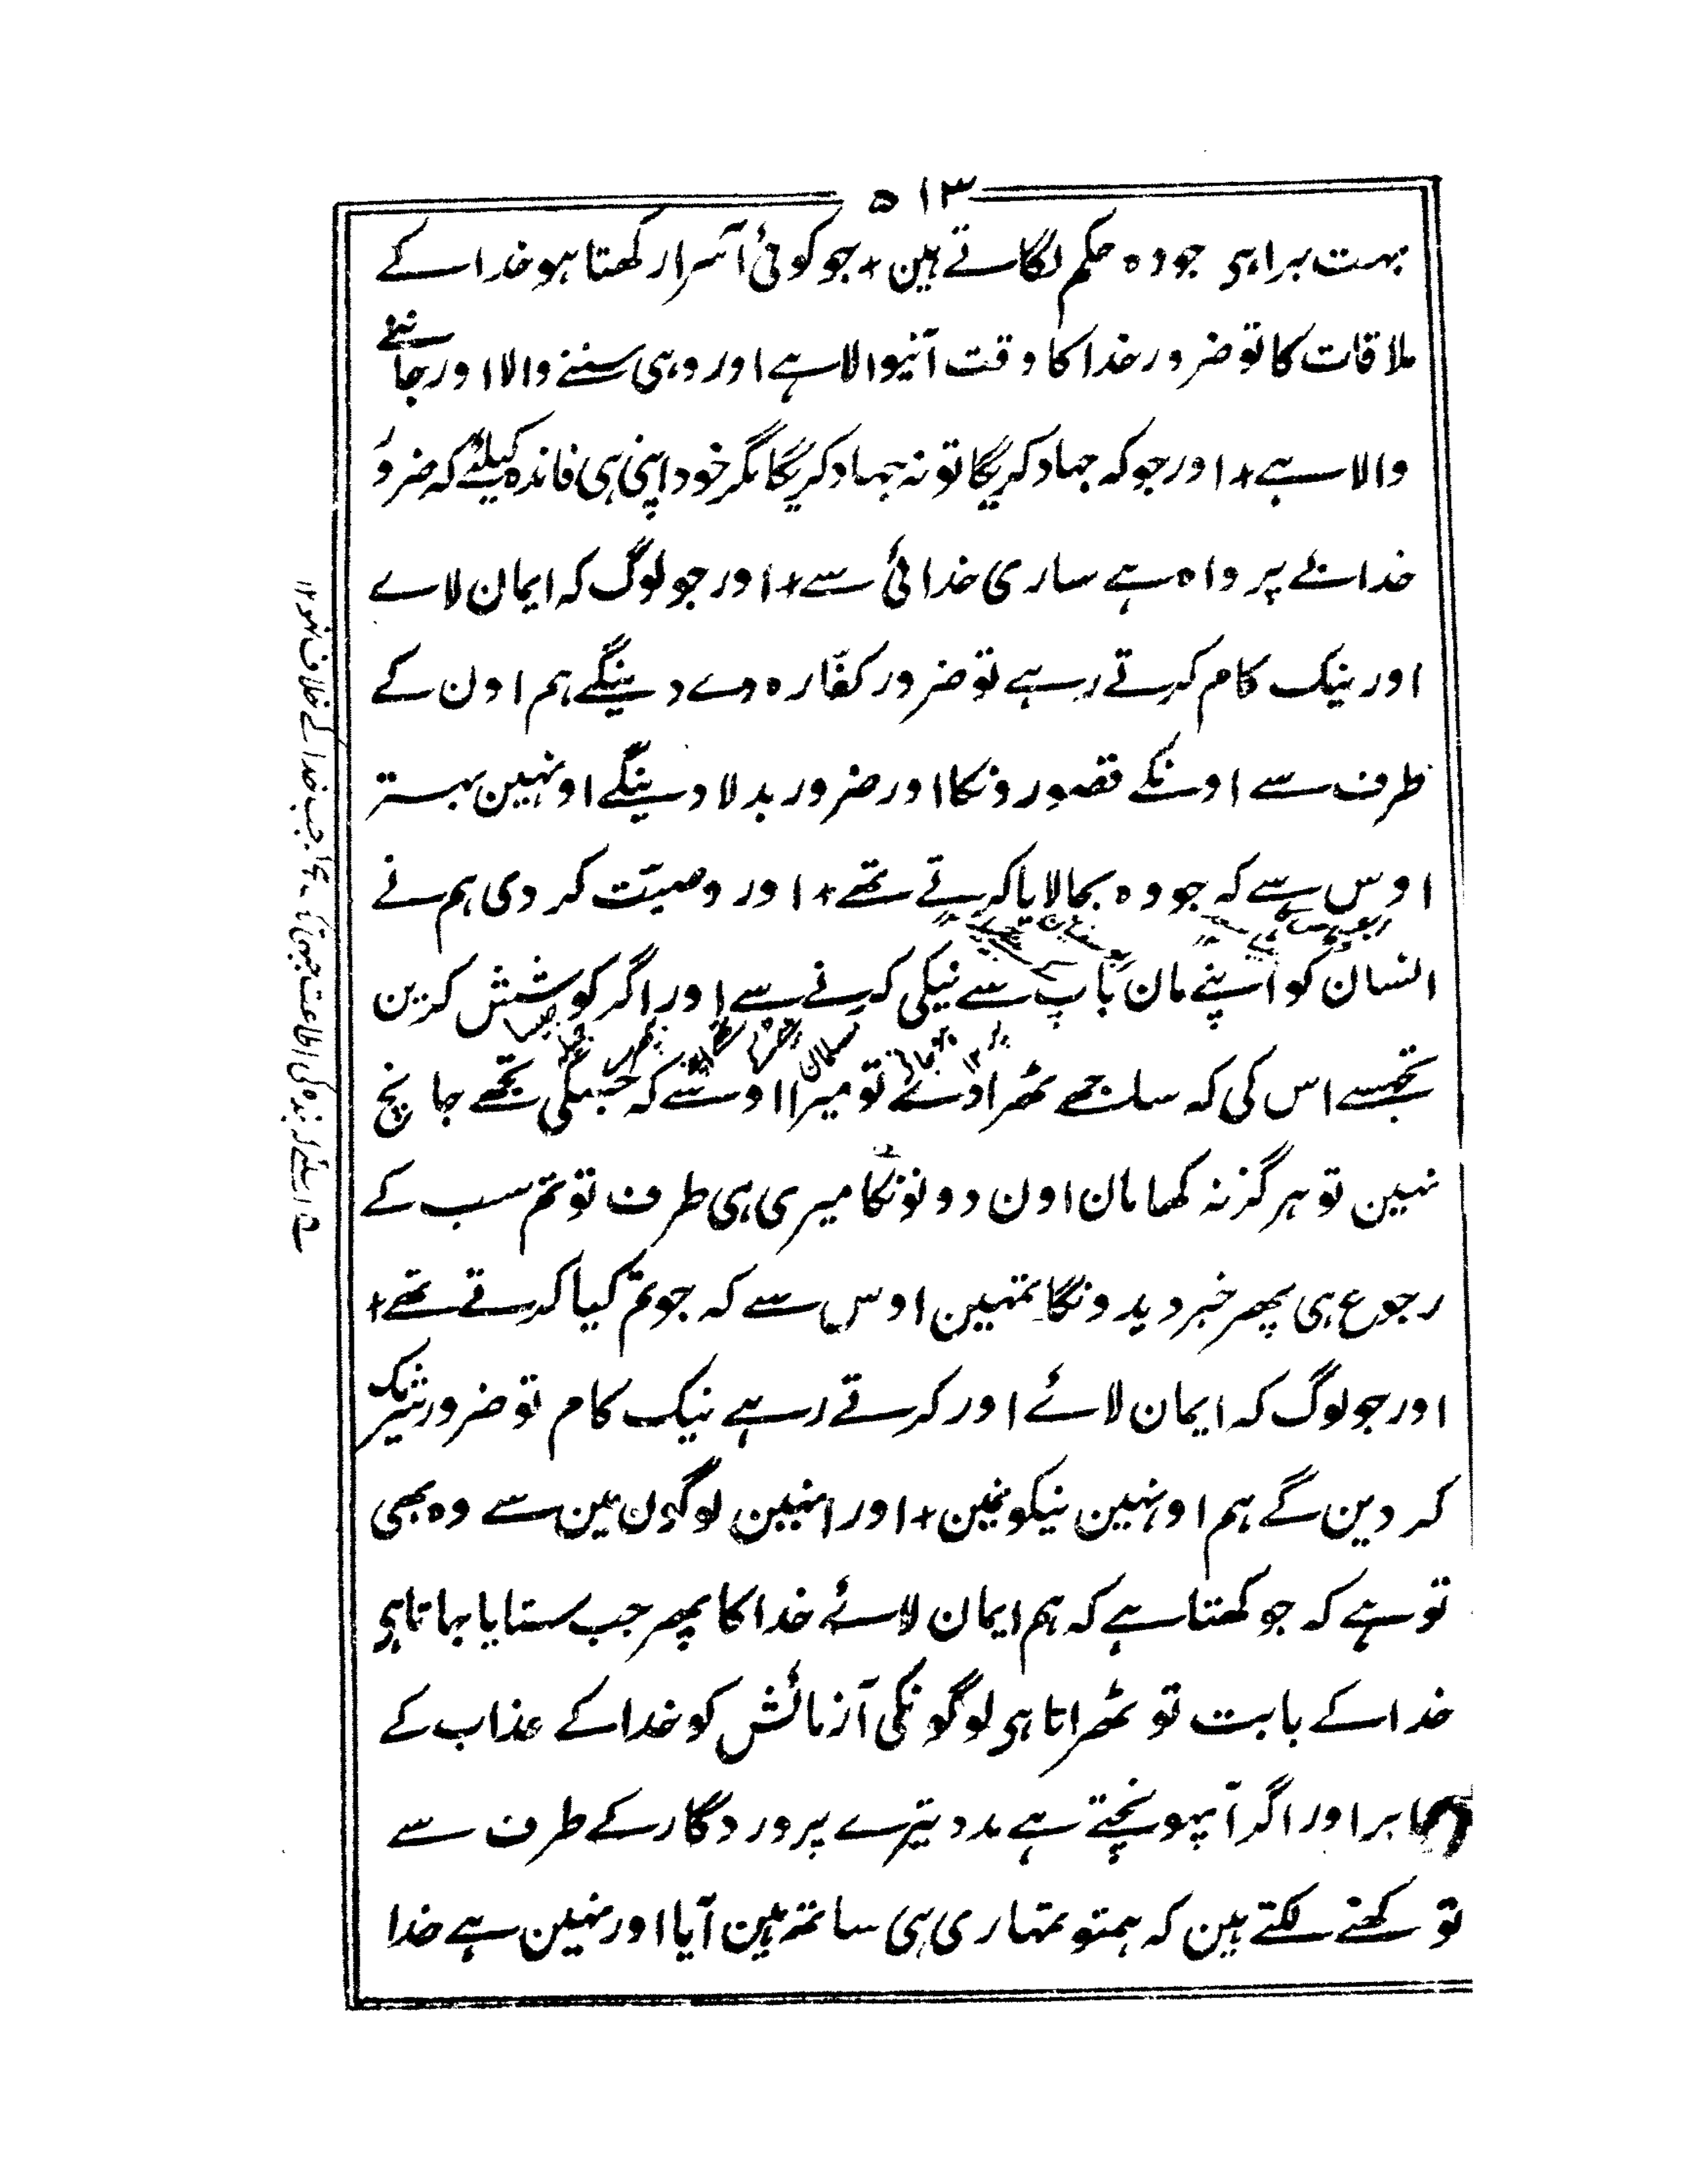 ۵۱۳
بہت برا ہی جو وہ حکم لگاتے ہین + جو کوئی آسرا رکھتا ہو خدا کے
ملاقات کا تو ضرور خدا کا وقت آنیوالا ہے اور وہی سننے والا اور جاننے
والا ہے + اور جو کہ جہاد کریگا تو نہ جہاد کریگا مگر خود اپنی ہی فائدہ کیلئے کہ ضرور
خدا بے پرواہ ہے ساری خدائی سے + اور جو لوگ کہ ایمان لاے
اور نیک کام کرتے رہے تو ضرور کفّارہ دے دینگے ہم اون کے
طرف سے اونکے قصورونکا اور ضرور بدلا دینگے اونہین بہتر
اوس سے کہ جو وہ بجا لایا کرتے تھے + اور وصیّت کر دی ہم نے
انسان کو اپنے مان باپ سے نیکی کرنے سے اور اگر کوشش کرین
تجھسے اس کی کہ ساجھے ٹھرا دے تو میرا اوسے کہ جسکی تجھے جانچ
نہین تو ہرگز نہ کھا مان اون دونونکا میری ہی طرف تو تم سب کے
رجوع ہی پھر خبر دیدونگا تمہین اوس سے کہ جو تم کیا کرتے تھے +
اور جو لوگ کہ ایمان لائے اور کرتے رہے نیک کام تو ضرور شریک
کر دین گے ہم اونہین نیکونمین + اور انہین لوگون مین سے وہ بھی
تو ہے کہ جو کھتا ہے کہ ہم ایمان لائے خدا کا پھر جب ستایا جاتا ہی
خدا کے بابت تو ٹھراتا ہی لوگونکی آزمائش کو خدا کے عذاب کے
برابر اور اگر آپہونچتے ہے مدد تیرے پروردگار کے طرف سے
تو کھنے لگتے ہین کہ ہمتو تمہاری ہی ساتھ ہین آیا اور نہین ہے خدا